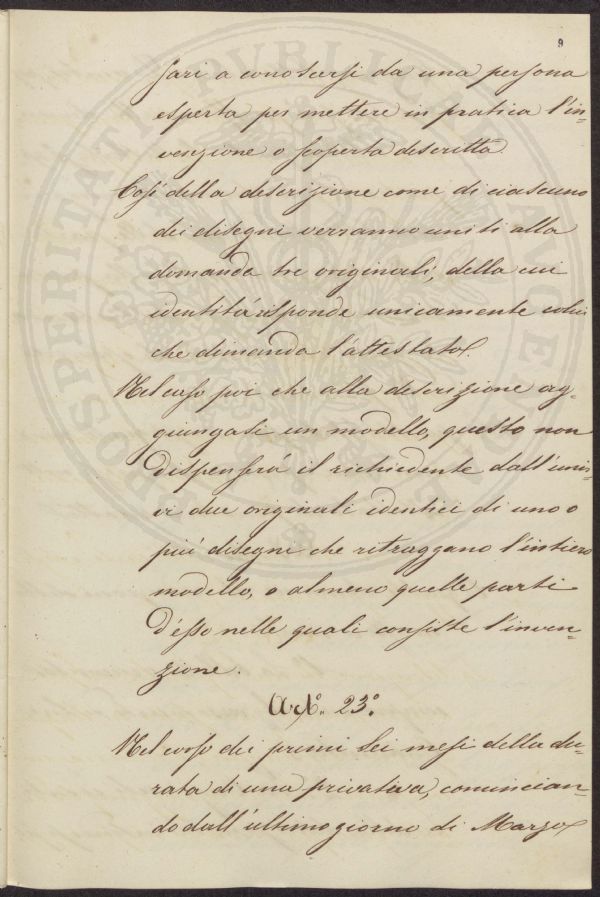 9
sari a conoscersi da una persona
esperta per mettere in pratica l'in=
venzione o scoperta descritta
Così della descrizione come di ciascuno
dei disegni verranno uniti alla
domanda tre originali, della cui
identità risponde unicamente colui
che dimanda l'attestato.
Nel caso poi che alla descrizione ag=
giungasi un modello, questo non
dispenserà il richiedente dall'unir=
vi due originali identici di uno o
più disegni che ritraggano l'intiero
modello, o almeno quelle parti
d'esso nelle quali consiste l'inven=
zione.
Art.º 23.º
Nel corso dei primi sei mesi della du=
rata di una privativa, comincian=
do dall'ultimo giorno di Marzo
PROSPERITATI PUBLICAE